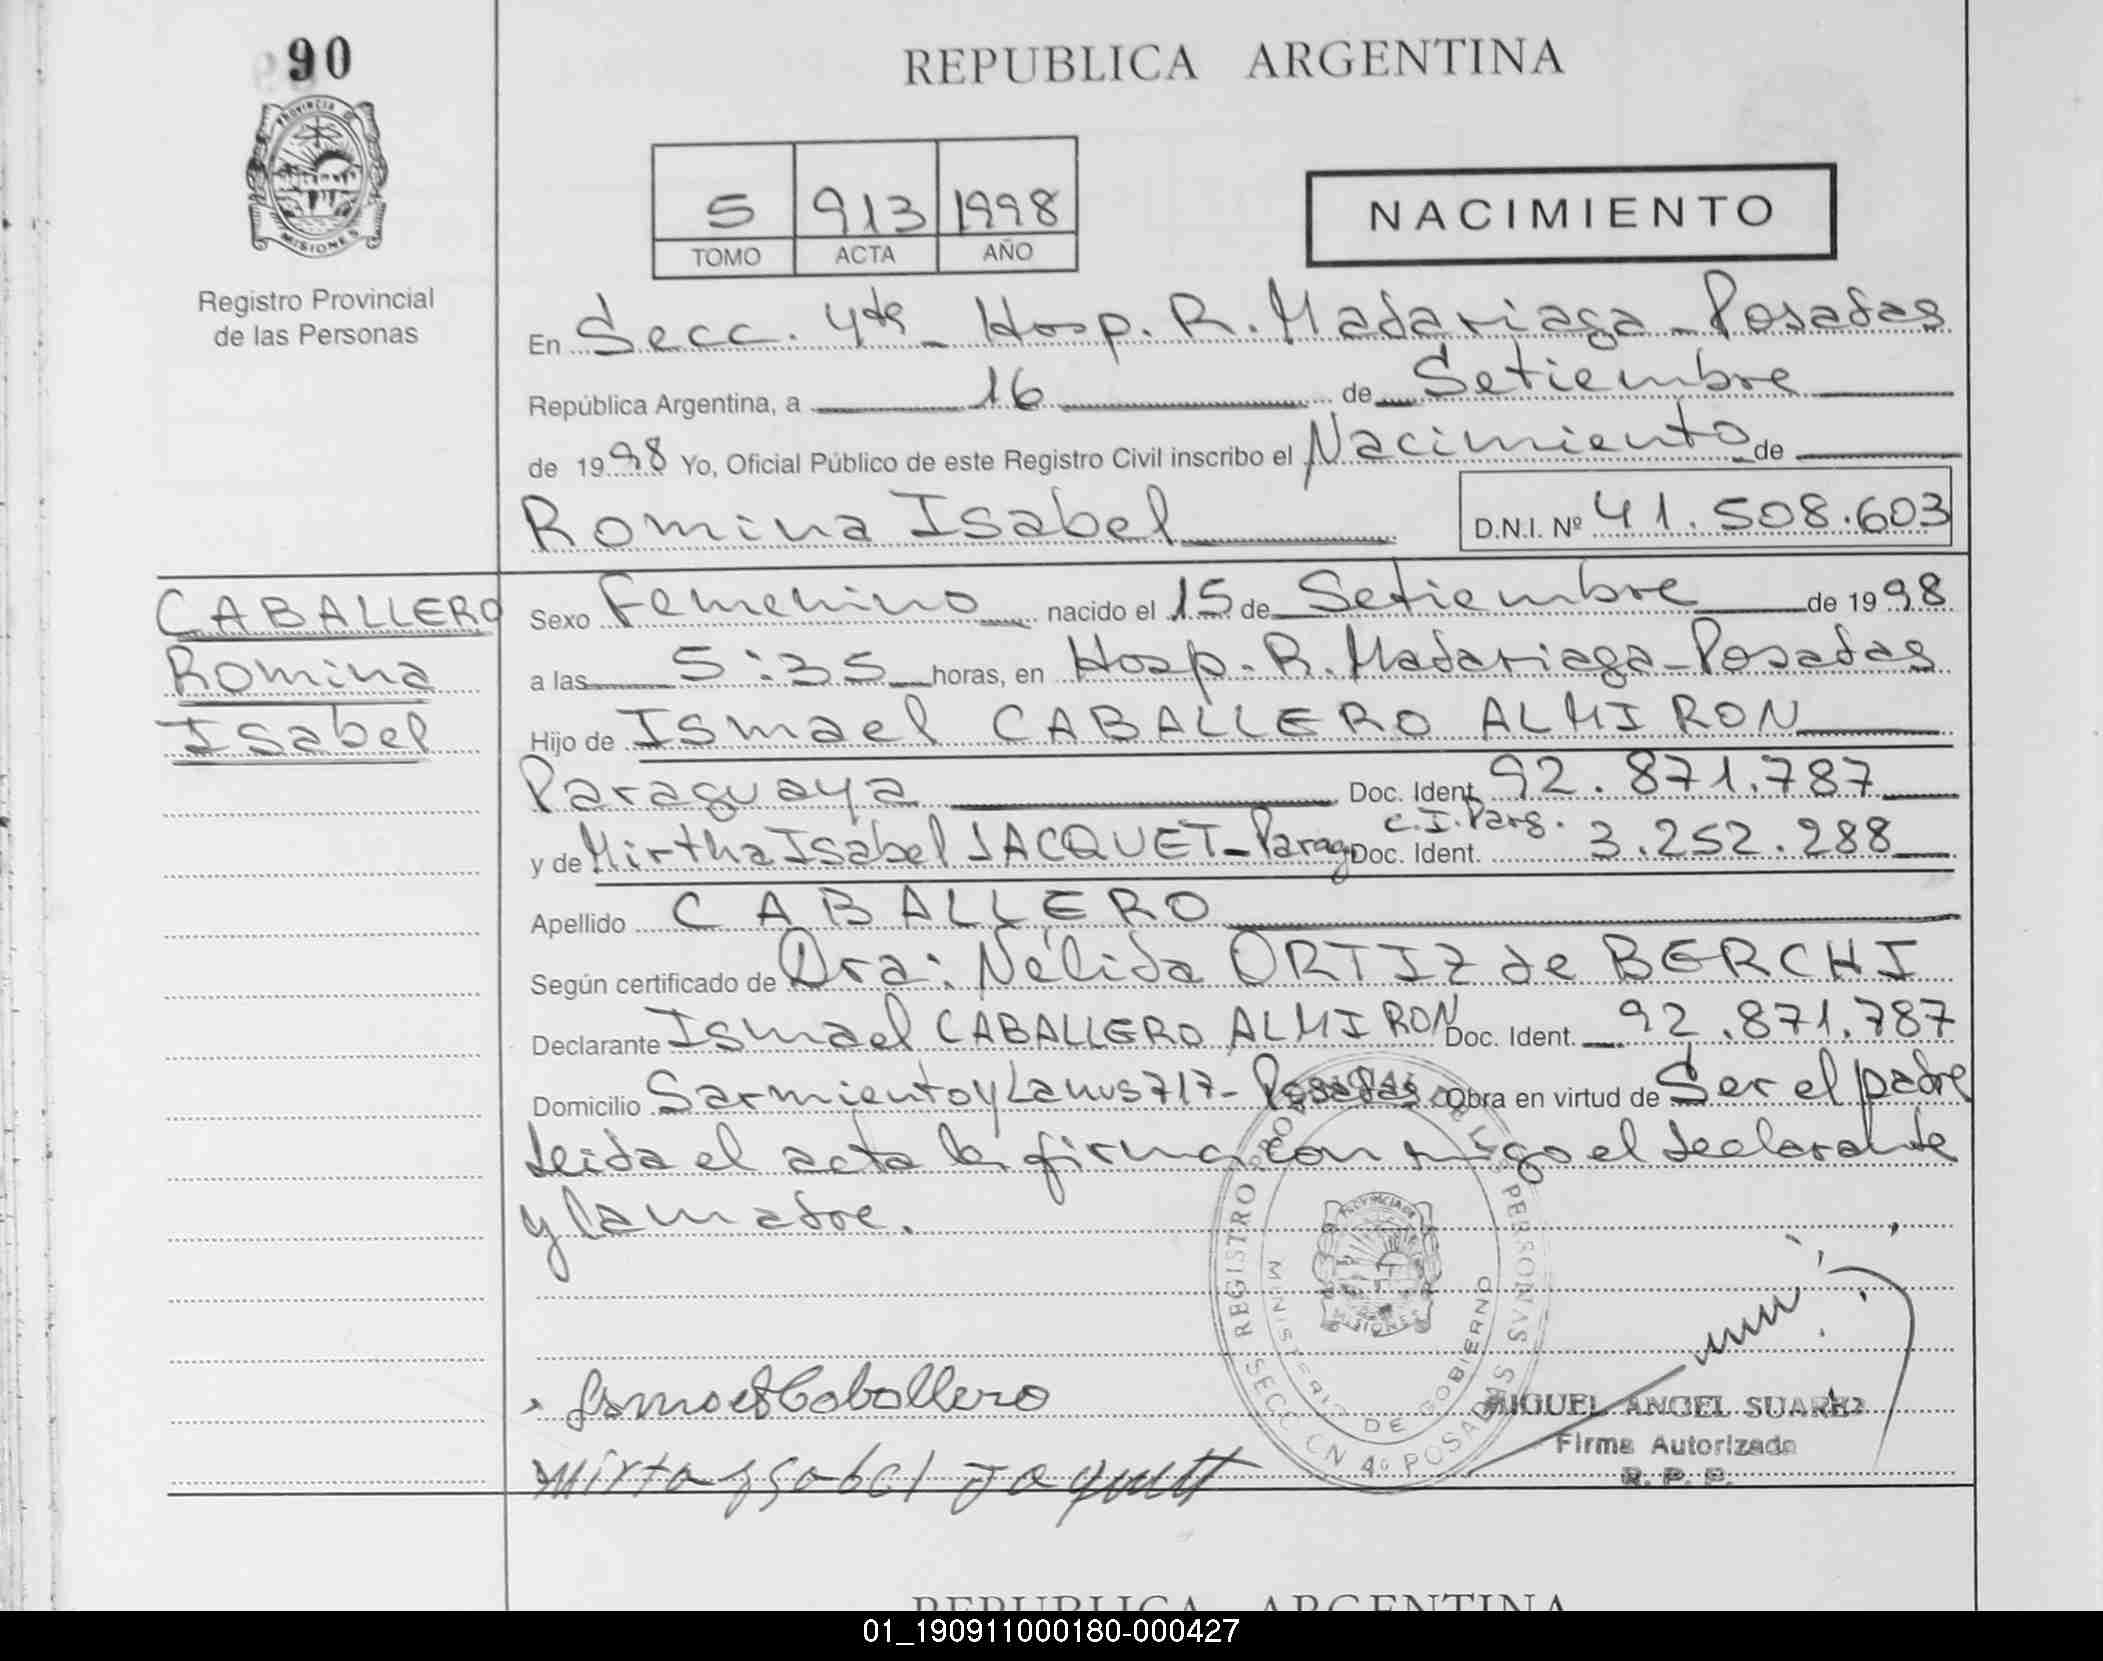 90
PROVINCIA DE
MISIONES
Registro Provincial
de las Personas
REPUBLICA ARGENTINA
5 913 1998
TOMO ACTA AÑO
NACIMIENTO
En Secc. 4ta - Hosp. R. Madariaga - Posadas
República Argentina, a 16 de Setiembre
de 1998 Yo, Oficial Público de este Registro Civil inscribo el Nacimiento de
Romina Isabel D.N.I. Nº 41.508.603
CABALLERO
Romina
Isabel
Sexo Femenino nacido el 15 de Setiembre de 1998
a las 5:35 horas, en Hosp. R. Madariaga - Posadas
Hijo de Ismael CABALLERO ALMIRON
Paraguaya Doc. Ident. 92.871.787
y de Mirtha Isabel JACQUET - Parag Doc. Ident. C.I. Parg. 3.252.288
Apellido CABALLERO
Según certificado de Dra: Nélida ORTIZ de BERCHI
Declarante Ismael CABALLERO ALMIRON Doc. Ident. 92.871.787
Domicilio Sarmiento y Lanus 717 - Posadas Obra en virtud de Ser el padre
Leida el acta la firma con migo el declarante
y la madre.
REGISTRO PROVINCIAL DE LAS PERSONAS
SECCION 4º POSADAS
MINISTERIO DE GOBIERNO
PROVINCIA DE
MISIONES
Ismael Caballero
Mirta Ysabel Jaquett
MIGUEL ANGEL SUAREZ
Firma Autorizada
R. P. P.
REPUBLICA ARGENTINA
01_190911000180-000427